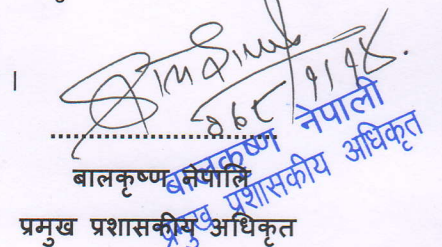 बालकृष्ण नेपालि
प्रमुख प्रशासकीय अधिकृत
बालकृष्ण नेपाली
प्रमुख प्रशासकीय अधिकृत